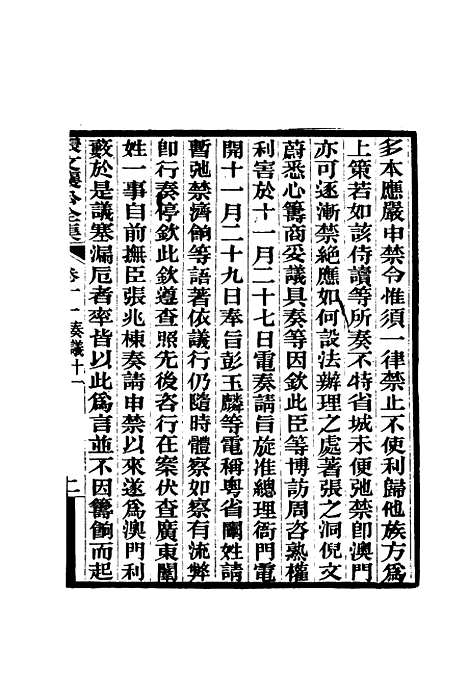 多本應嚴申禁令惟須一律禁止不使利歸他族方爲
上策若如該侍讀等所奏不特省城未便弛禁卽澳門
亦可逐漸禁絕應如何設法辦理之處著張之洞倪文
蔚悉心籌商妥議具奏等因欽此臣等博訪周咨熟權
利害於十一月二十七日電奏請旨旋准總理衙門電
開十一月二十九日奉旨彭玉麟等電稱粵省闈姓請
暫弛禁濟餉等語著依議行仍隨時體察如察有流弊
卽行奏停欽此欽遵查照先後咨行在案伏查廣東闈
姓一事自前撫臣張兆棟奏請申禁以來遂爲澳門利
藪於是議塞漏卮者率皆以此爲言並不因籌餉而起
文襄公全集 卷十一 奏議十一 上